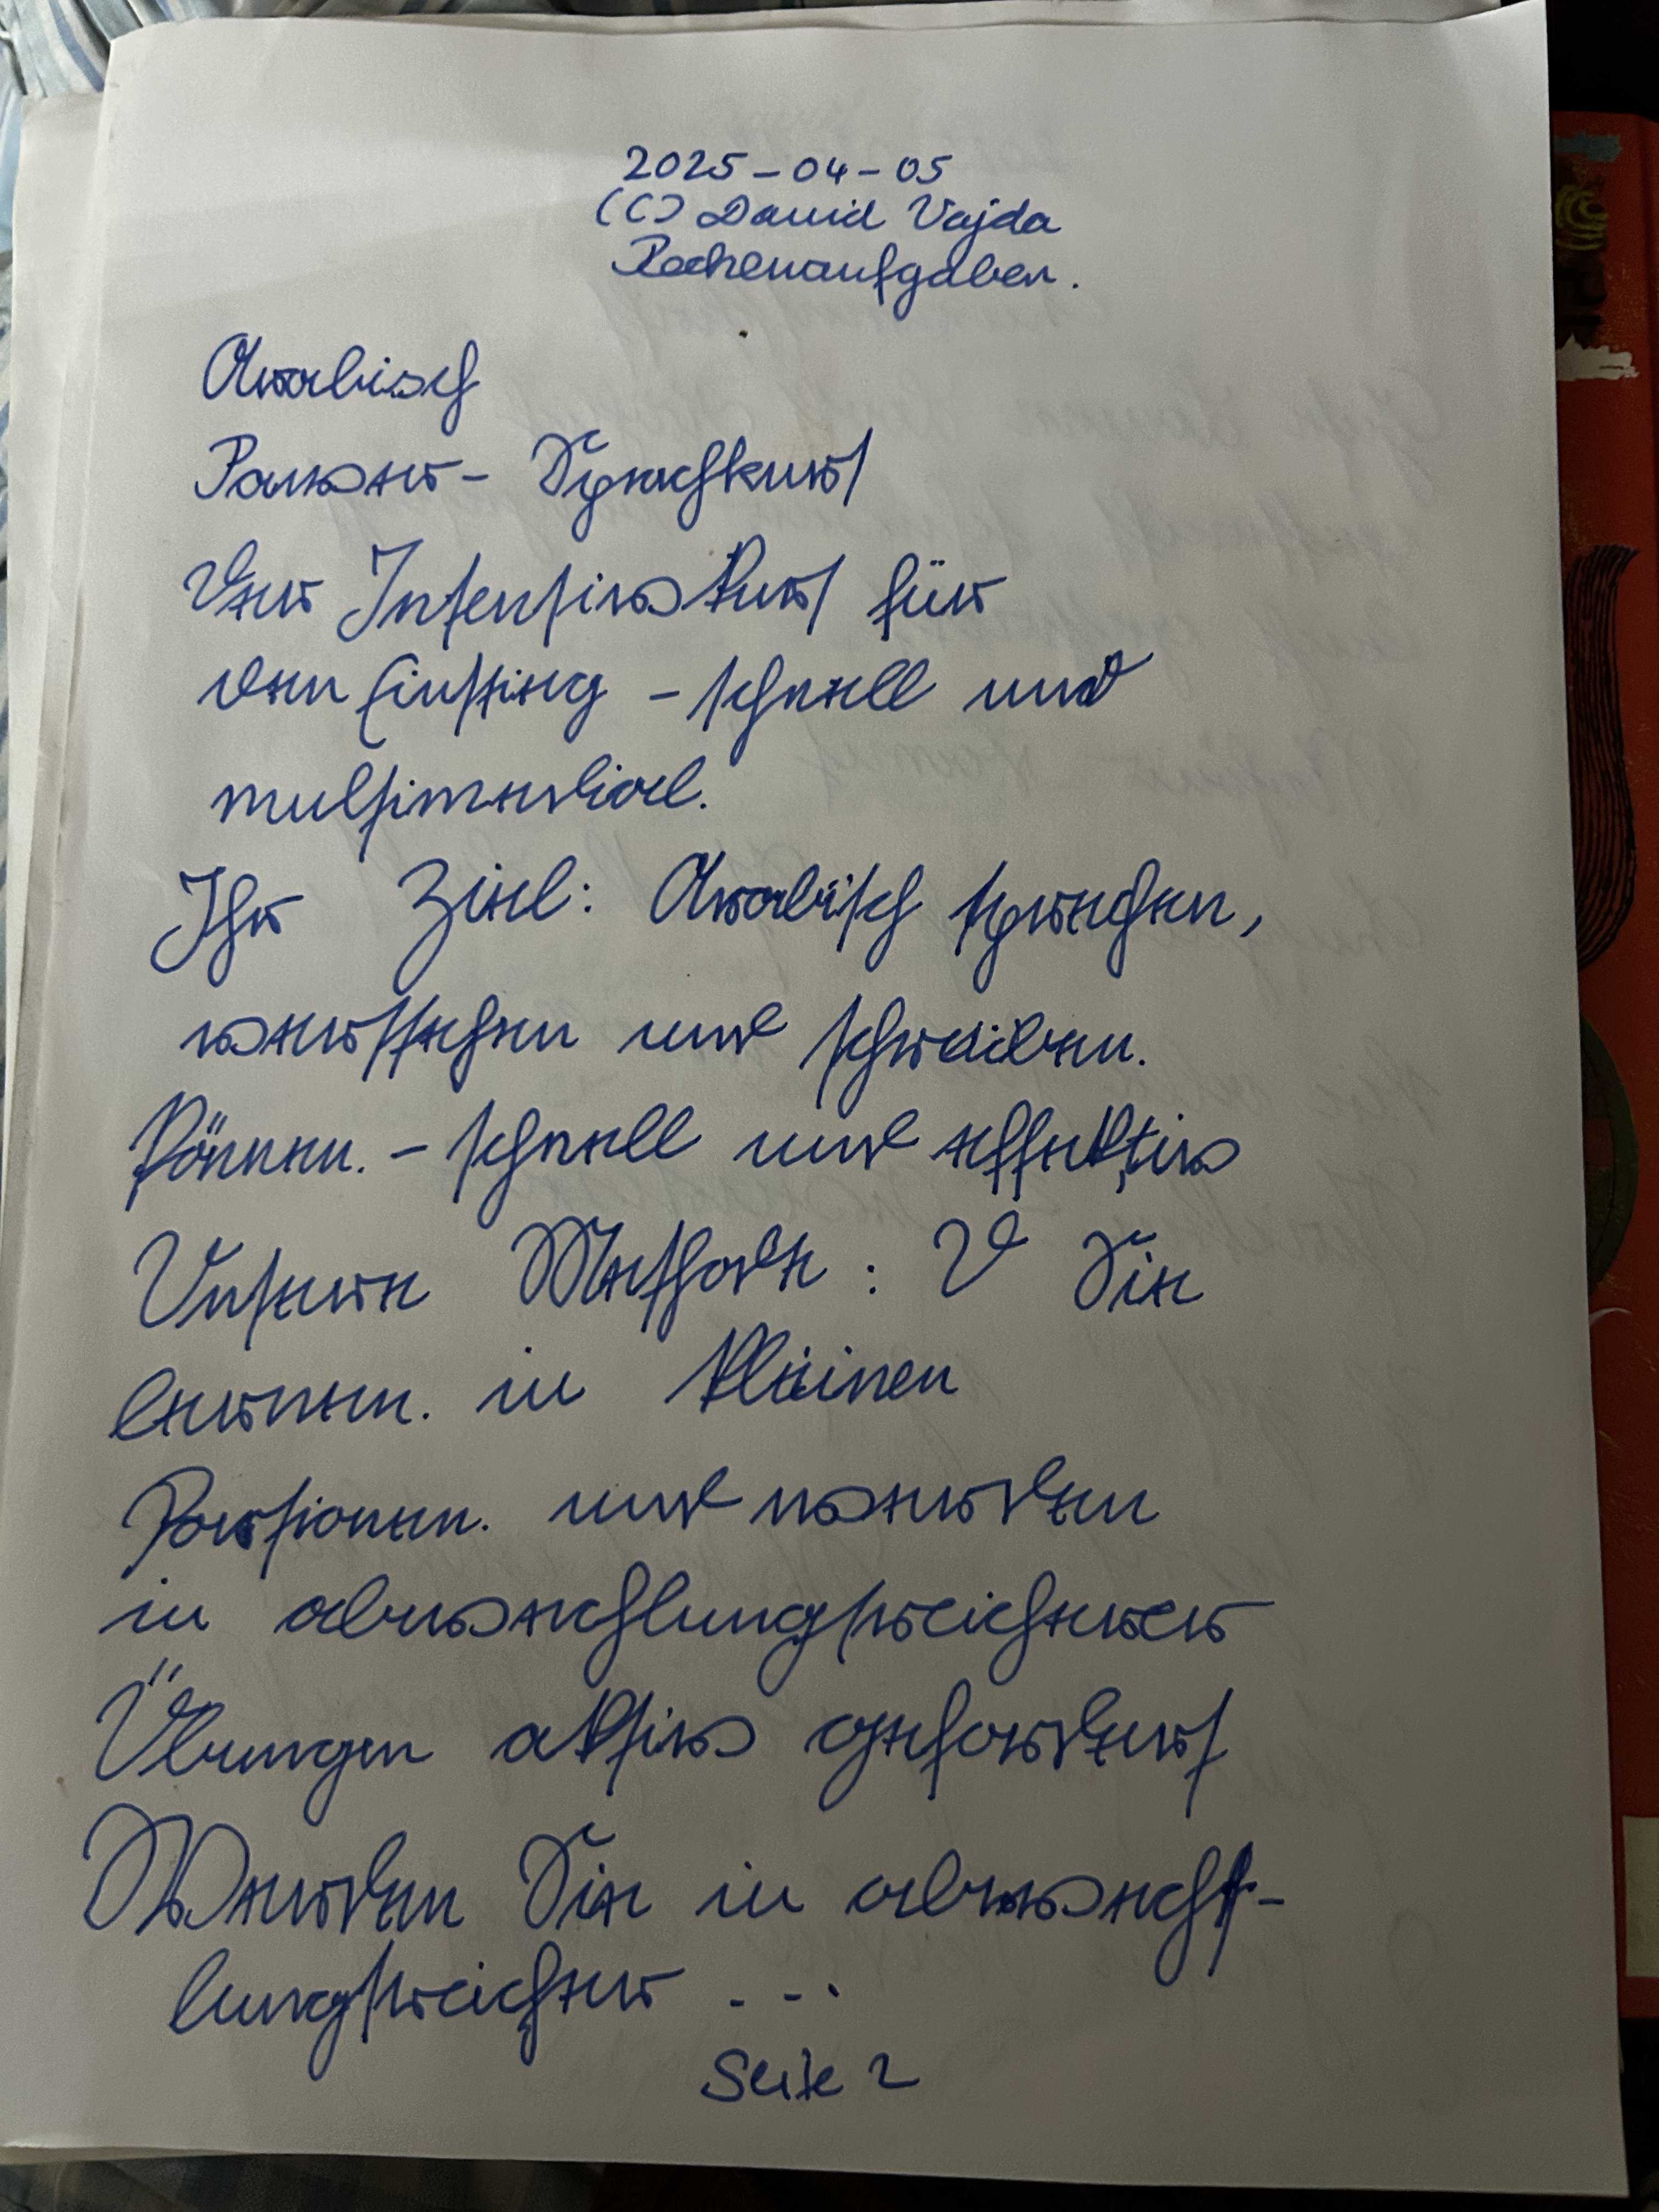 2025-04-05
(C) David Vajda
Rechenaufgaben.
Arabisch
Power-Sprachkurs
Der Intensivkurs für
den Einstieg - schnell und
multimedial.
Ihr Ziel: Arabisch sprechen,
verstehen und schreiben.
können. - schnell und effektiv
Unsere Methode: D Sie
lernen. in kleinen
Portionen. und werden
in abwechlungsreicherer
Übungen aktiv gefordert
Werden Sie in abwechs-
lungsreicher ...
Seite 2